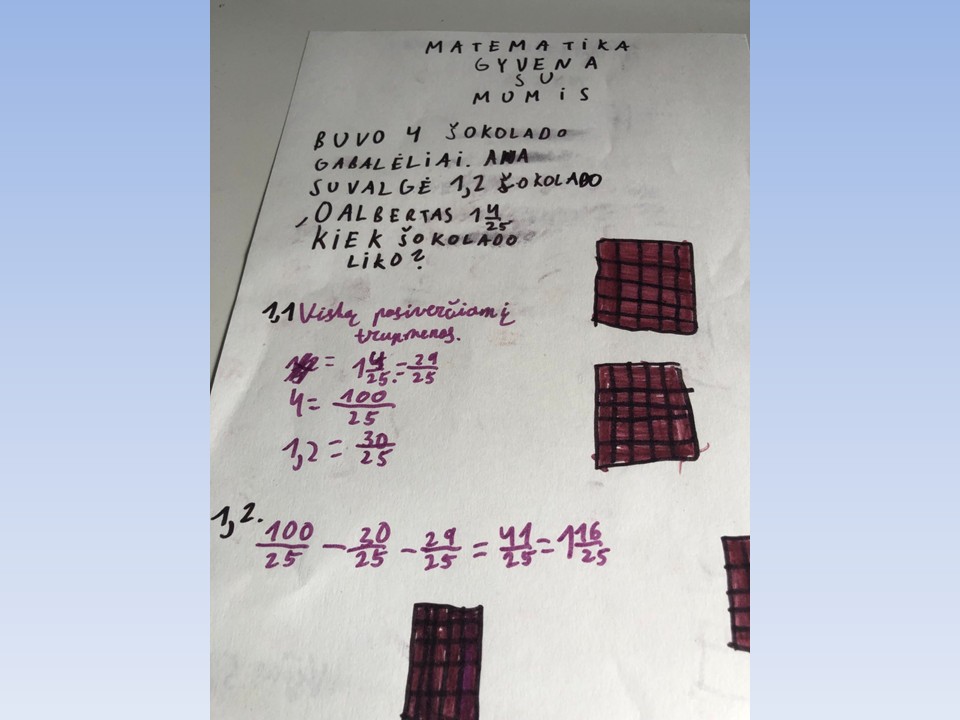 MATEMATIKA
GYVENA
SU
MUMIS
BUVO 4 ŠOKOLADO
GABALĖLIAI. ANA
SUVALGĖ 1,2 ŠOKOLADO
,O ALBERTAS 1 4/25
KIEK ŠOKOLADO
LIKO?
1,1 Viską pasiverčiam į
trupmenas.
= 1 4/25 = 29/25
4 = 100/25
1,2 = 30/25
1,2. 100/25 - 30/25 - 29/25 = 41/25 = 1 16/25